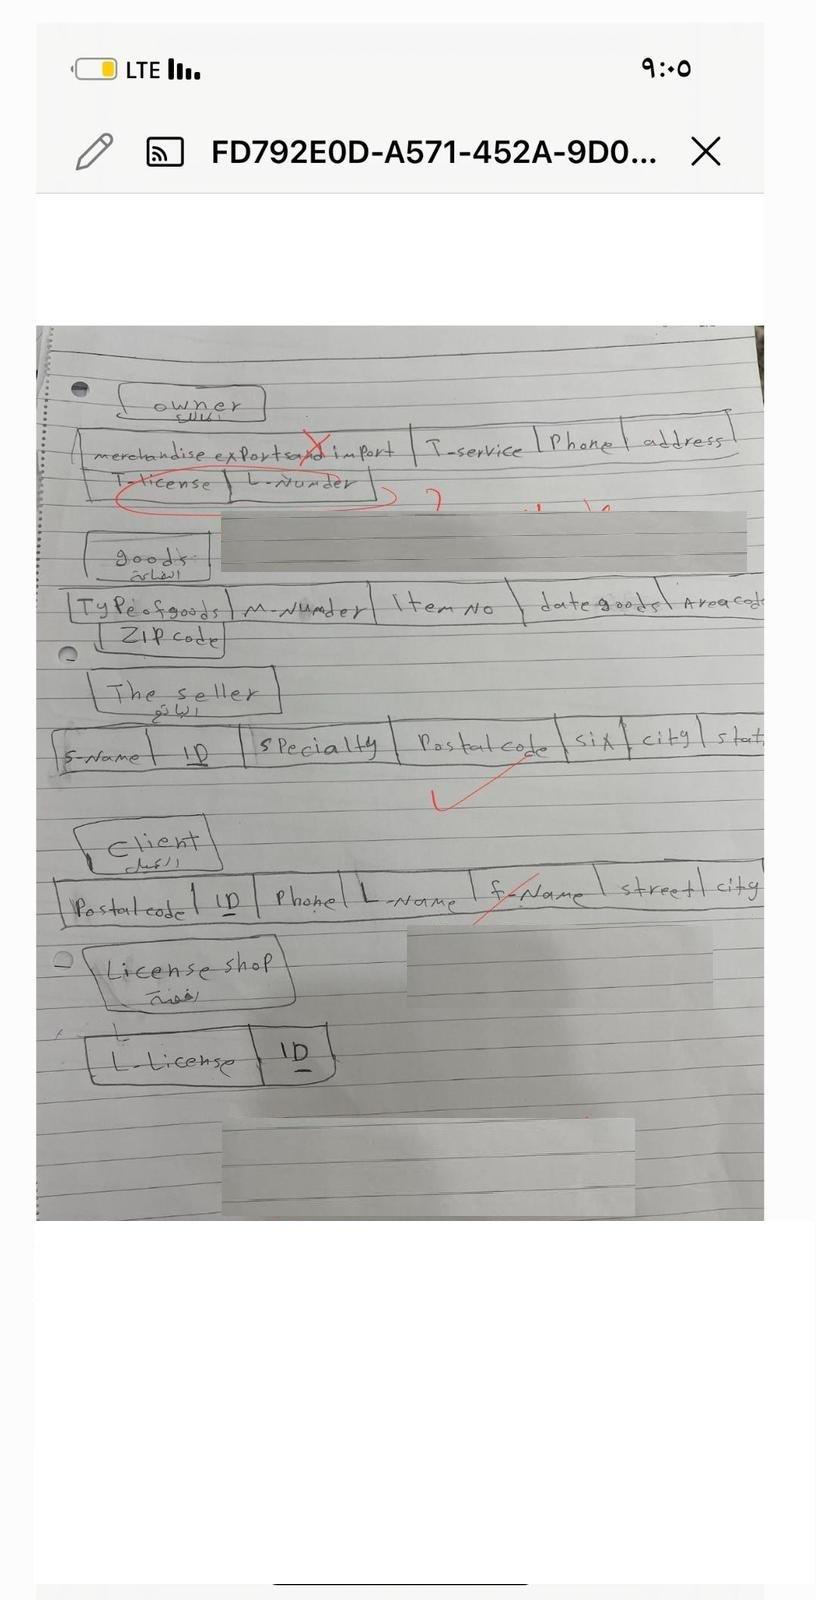 LTE ٩:٠٥
FD792E0D-A571-452A-9D0...
owner
merchandise exports and import T-service Phone address
T-license L-Number
?
goods
البضاعة
Type of goods M-Number Item No date goods Area cod
ZIP code
The seller
البائع
S-Name ID specialty Postal code six city stat
Client
العميل
Postal code ID Phone L-Name f-Name street city
License shop
L-License ID